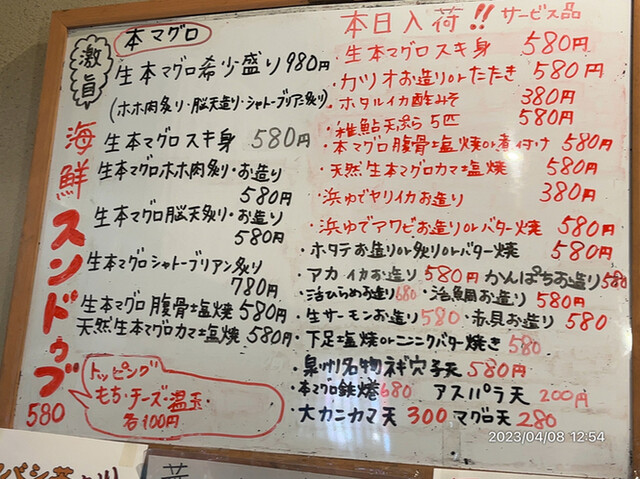 激旨
本マグロ
生本マグロ希少盛り 980円
(ホホ肉炙り・脳天造り・シャトーブリアン炙り)
生本マグロスキ身 580円
生本マグロホホ肉炙り・お造り
580円
生本マグロ脳天炙り・お造り
580円
生本マグロシャトーブリアン炙り
780円
生本マグロ腹骨塩焼 580円
天然生本マグロカマ塩焼 580円
海鮮スンドゥブ
580
トッピング
もち・チーズ・温玉
各100円
本日入荷!! サービス品
・生本マグロスキ身 580円
・カツオお造りorたたき 580円
・ホタルイカ酢みそ 380円
・稚鮎天ぷら5匹 580円
・本マグロ腹骨塩焼or煮付け 580円
・天然生本マグロカマ塩焼 580円
・浜ゆでヤリイカお造り 380円
・浜ゆでアワビお造りorバター焼 580円
・ホタテお造りor炙りorバター焼 580円
・アカイカお造り 580円 かんぱちお造り 580
・活ひらめお造り 680 ・活鯛お造り 580円
・生サーモンお造り 580 ・赤貝お造り 580
・下足塩焼orニンニクバター焼き 580
・泉州名物ネギ穴子天 580円
・本マグロ鉄火巻 680 アスパラ天 200円
・大カニカマ天 300 マグロ天 280
2023/04/08 12:54